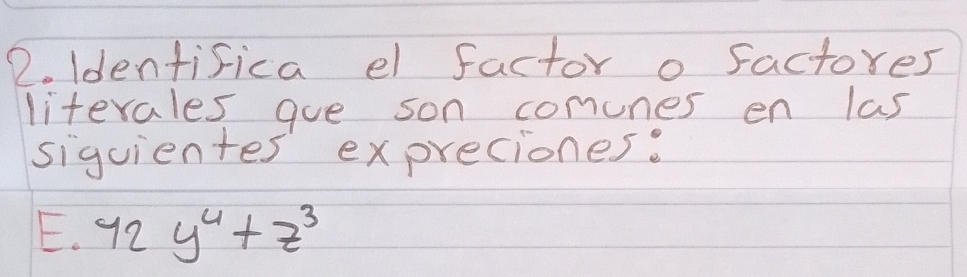 2. Identifica el factor o factores
literales que son comunes en las
siguientes expreciones:
E. 42 y⁴ + z³